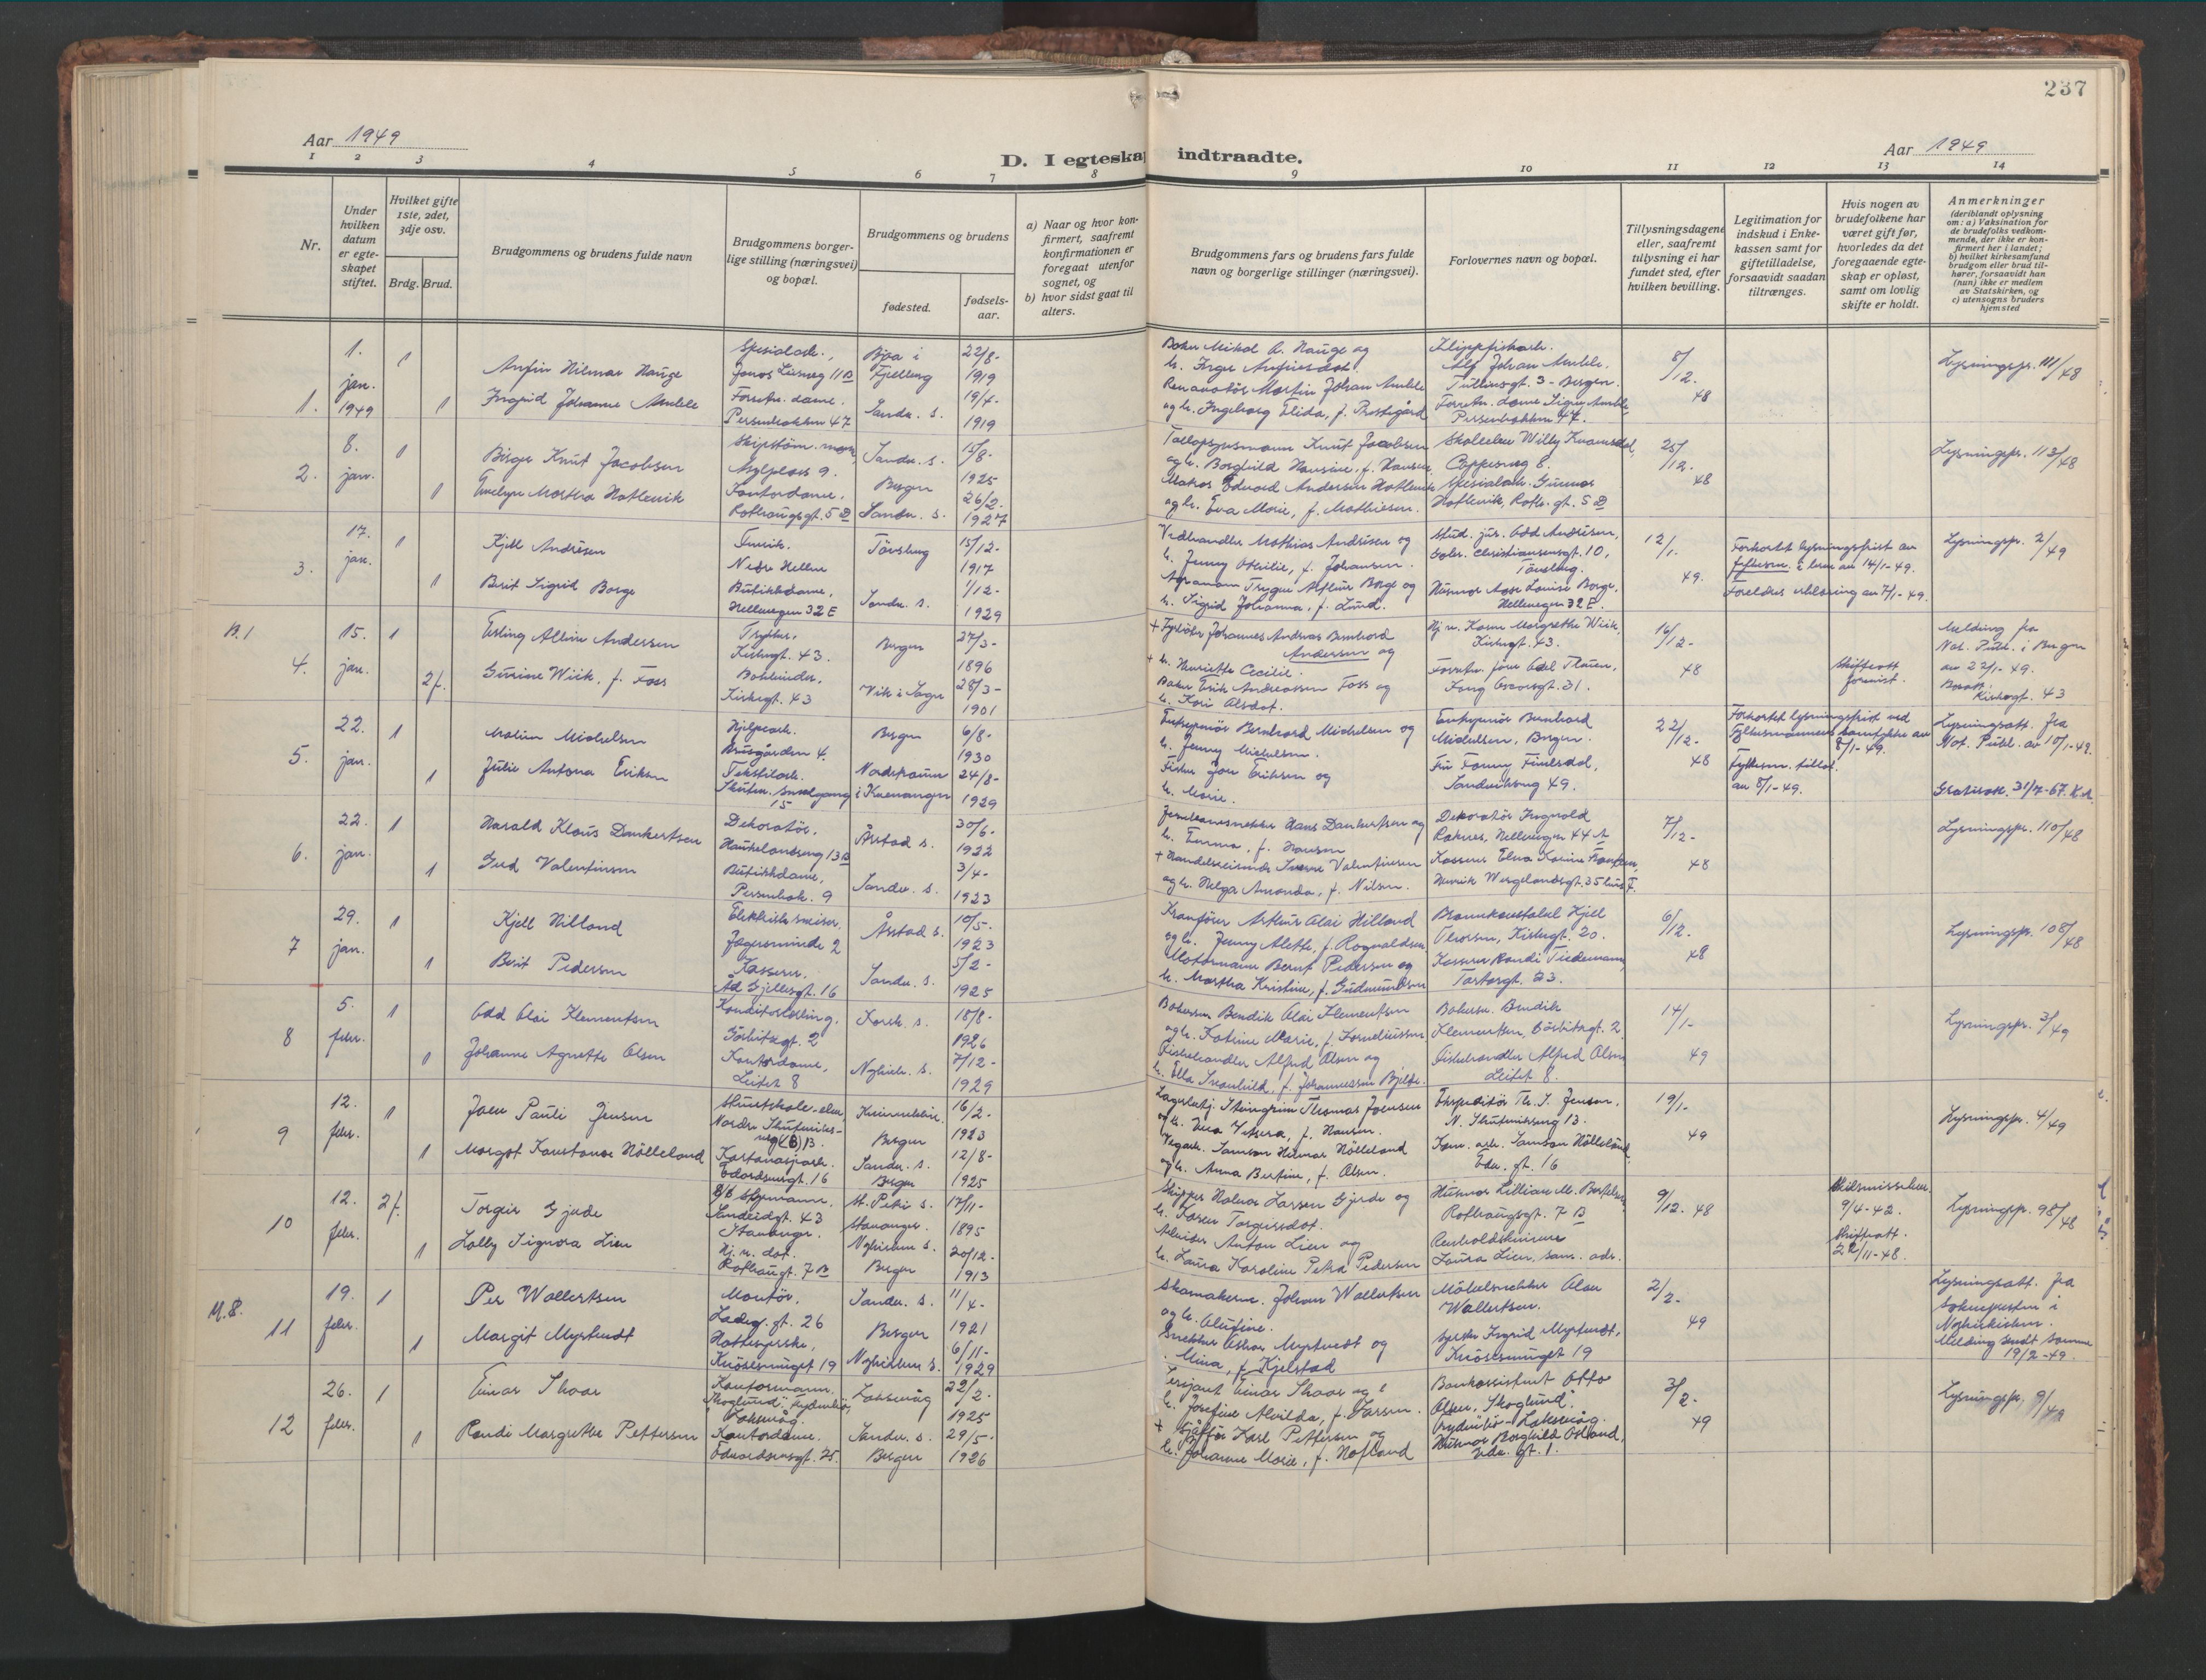 237
Aar 1949
D. I egteskap indtraadte.
Aar 1949
1 2 3 4 5 6 7 8 9 10 11 12 13 14
Nr.
Under hvilken datum er egteskapet stiftet.
Hvilket gifte 1ste, 2det, 3dje osv.
Brdg. Brud.
Brudgommens og brudens fulde navn
Brudgommens borgerlige stilling (næringsvei) og bopæl.
Brudgommens og brudens
fødested.
fødselsaar.
a) Naar og hvor konfirmert, saafremt konfirmationen er foregaat utenfor sognet, og
b) hvor sidst gaat til alters.
Brudgommens fars og brudens fars fulde navn og borgerlige stillinger (næringsvei).
Forlovernes navn og bopæl.
Tillysningsdagene eller, saafremt tillysning ei har fundet sted, efter hvilken bevilling.
Legitimation for indskud i Enkekassen samt for giftetilladelse, forsaavidt saadan tiltrænges.
Hvis nogen av brudefolkene har været gift før, hvorledes da det foregaaende egteskap er opløst, samt om lovlig skifte er holdt.
Anmerkninger
(deriblandt oplysning om: a) Vaksination for de brudefolks vedkommende, der ikke er konfirmert her i landet; b) hvilket kirkesamfund brudgom eller brud tilhører, forsaavidt han (hun) ikke er medlem av Statskirken, og c) utensogns bruders hjemsted
1. 1. jan. 1949
1 Anfin Hilmar Hauge
1 Ingrid Johanne Amble
Spesialarb., Jonas Liesveg 11 B
Forretn. dame. Persenbakken 47
Bjoa i Fjelberg
Sandv. s.
22/8- 1919
19/4- 1919
Baker Mikal A. Hauge og
h. Inger Anfinsdot.
Renovatör Martin Johan Amble
og h. Ingeborg Elida, f. Prestegård
Klippfiskarb. Alf Johan Amble,
Tullinsgt. 3 - Bergen.
Forretn. dame Signy Amble,
Persenbakken 47.
8/12. 48
Lysningspr. 111/48
2. 8. jan.
1 Birger Knut Jacobsen
1 Evelyn Martha Hatlevik
Asylplass 9.
Kontordame, Rothaugsgt. 5 D
Sandv. s.
Bergen
Sandv. s.
15/8- 1925
26/2- 1927
Knut Jacobsen
og h. Borghild Hansine, f. Hansen.
Matros Edvard Andersen Hatlevik
og h. Eva Marie, f. Mathiesen.
Willy Kvamsdal,
8.
Spesialarb. Gunnar
Hatlevik, Roth. gt. 5 D
25/12. 48
Lysningspr. 113/48
3. 17. jan.
1 Kjell Andrésen
1 Berit Sigrid Borge
Fenrik. Nedre Hellen
Butikkdame, Helleveien 32 E
Tönsberg
Sandv. s.
15/12- 1917
1/12- 1929
Vedhandler Mathias Andrésen og
h. Jenny Othilie, f. Johansen.
Agronom Trygve Arthur Borge og
h. Sigrid Johanna, f. Lund.
Stud. jur. Odd Andrésen,
Christiansensgt. 10,
Tönsberg.
Husmor Aase Louise Borge,
Helleveien 32 E.
12/1. 49.
Forkortet lysningsfrist av
Fylkesm. i brev av 14/1-49.
Foreldres erklæring av 7/1-49.
Lysningspr. 2/49
B. 1
4. 15. jan.
1 Erling Albin Andersen
2 f. Gurine Wiik, f. Foss
Trykker. Kirkegt. 43.
Bokbinder, Kirkegt. 43
Bergen
Vik i Sogn
27/3- 1896
28/3- 1901
+ Fyrböter Johannes Andreas Bernhard
Andersen og
+ h. Henriette Cecilie.
Baker Erik Andreassen Foss og
h. Kari Olsdot.
Hj. v. Karen Margrethe Wiik,
Kirkegt. 43.
Forretn. förer Odd Thauen,
Kong Oscarsgt. 31.
16/12- 48
Skifteatt forevist.
Melding fra
Not. Publ. i Bergen
av 22/1-49.
Kirkegt. 43
5. 22. jan.
1 Martin Michelsen
1 Julie Antona Eriksen
Hjelpearb. Krusgården 4.
Tekstilarb. Skuten. smalgang 15
Bergen
Nordstraumen i Kvenangen
6/8- 1930
24/8- 1929
Entreprenör Bernhard Michelsen og
h. Jenny Michelsen.
Fisker Jon Eriksen og
h. Marie.
Entreprenör Bernhard
Michelsen, Bergen.
Fru Fanny Finelsdal,
Sandviksveg 49.
22/12- 48
Forkortet lysningsfrist ved
Fylkesmannens samtykke av
8/1-49.
Fylkesm. tillat.
av 8/1-49.
Lysningsatt. fra
Not. Publ. av 10/1-49.
Gratisatt. 31/7-67.
6. 22. jan.
1 Harald Klaus Dankertsen
1 Gerd Valentinsen
Dekoratör, Haukelandsveg 13 B
Butikkdame, Persenbak. 9
Årstad s.
Sandv. s.
30/6- 1922
3/4- 1923
Hans Dankertsen og
h. Emma, f. Hansen
+ Handelsreisende Sverre Valentinsen
og h. Helga Amanda, f. Nilsen.
Dekoratör Ragnvald
Raknes, Helleveien 44 A
Kasserer Elna Karine Frantzen,
Henrik Wergelandsgt. 35 hus F.
7/12- 48
Lysningspr. 110/48
7 29. jan.
1 Kjell Hilland
1 Berit Pedersen
Elektrisk sveiser, Jægersminde 2
Kasserer. Ad Gjellesgt. 16
Årstad s.
Sandv. s.
10/5- 1923
5/2- 1925
Kranförer Arthur Olai Hilland
og h. Jenny Alette, f. Rognaldsen
Motormann Bernt Pedersen og
h. Martha Kristine, f. Gudmundsen
Brannkonstabel Kjell
Thorsen, Kirkegt. 20.
Kasserer Randi Tiedemann,
Tartargt. 23.
6/12. 48
Lysningspr. 108/48
8 5. febr.
1 Odd Olai Klementsen
1 Johanne Agnethe Olsen
Konditorlærling, Görbitzgt. 2
Kontordame, Leitet 8
Korsk. s.
Nykirk. s.
18/8- 1926
7/12- 1929
Bakersv. Bendik Olai Klementsen
og h. Katrine Marie, f. Korneliussen
Fiskehandler Alfred Olsen og
h. Ella Svanhild, f. Johannessen Bjelke.
Bakersv. Bendik
Klementsen, Görbitzgt. 2
Fiskehandler Alfred Olsen
Leitet 8.
14/1- 49
Lysningspr. 3/49
9 12. febr.
1 Joen Pauli Jensen
1 Margot Konstanse Hölleland
Nordre Skuteviksveg (B) 13.
Kartonasjearb. Edvardsensgt. 16
Bergen
Sandv. s. Bergen
16/2- 1923
12/8- 1925
Steingrim Thomas Joensen
og h. f. Hansen.
Vegarb. Samson Hilmar Hölleland
og h. Anna Bertine, f. Olsen.
Ekspeditör Th. J. Jensen,
N. Skuteviksveg 13.
Kom. arb. Samson Hölleland
Edv. gt. 16
19/1- 49
Lysningspr. 4/49
10 12. febr.
2 f. Torgeir Gjerde
1 Lolly Signora Lien
Sandeidgt. 43 Stavanger.
Hj. v. dat. Rothaugt. 7 B
St. Petri s. Stavanger.
Nykirkens s. Bergen
17/11- 1895
20/12- 1913
Skipper Halvor Larsen Gjerde og
h. Karen Torgeirsdot.
Anton Lien og
h. Laura Karoline Petra Pedersen
Husmor Lillian M. Bertelsen
Rothaugsgt. 7 B
Renholdskvinne
Laura Lien, sam. adr.
9/12. 48
Skilsmissebev. 9/4-42.
Skifteatt. 22/11-48.
Lysningspr. 98/48
M. 8.
11 19. febr.
1 Per Wollertsen
1 Margit Myrtvedt
Montör, Ladeg. gt. 26
Knösesmuget 19
Sandv. s.
Bergen
Nykirkens s.
11/4- 1921
6/11- 1929
Skomakerm. Johan Wollertsen
og h. Alufine.
Snekker Oskar Myrtvedt og
h. Mina, f. Kjelstad
Möbelsnekker Olav
Wollertsen.
Syerske Ingrid Myrtvedt,
Knösesmuget 19
2/2- 49
Lysningsatt. fra
Soknepresten i
Nykirken.
Melding sendt samme
19/2-49.
12 26. febr.
1 Einar Skaar
1 Randi Margrethe Pettersen
Kontormann. "Skoglund", Gyldenkr. Laksevåg.
Kontordame. Edvardsensgt. 25.
Laksevåg
Sandv. s. Bergen
22/2. 1925
29/5- 1926
Sersjant Einar Skaar og
h. Josefine Alvilda, f. Larsen.
+ Sjåför Karl Pettersen og
h. Johanne Marie, f. Hofland
Bankassistent Otto
Olsen, "Skoglund",
Laksevåg.
Husmor Borghild Osland,
Edv. gt. 1.
3/2- 49
Lysningspr. 9/49